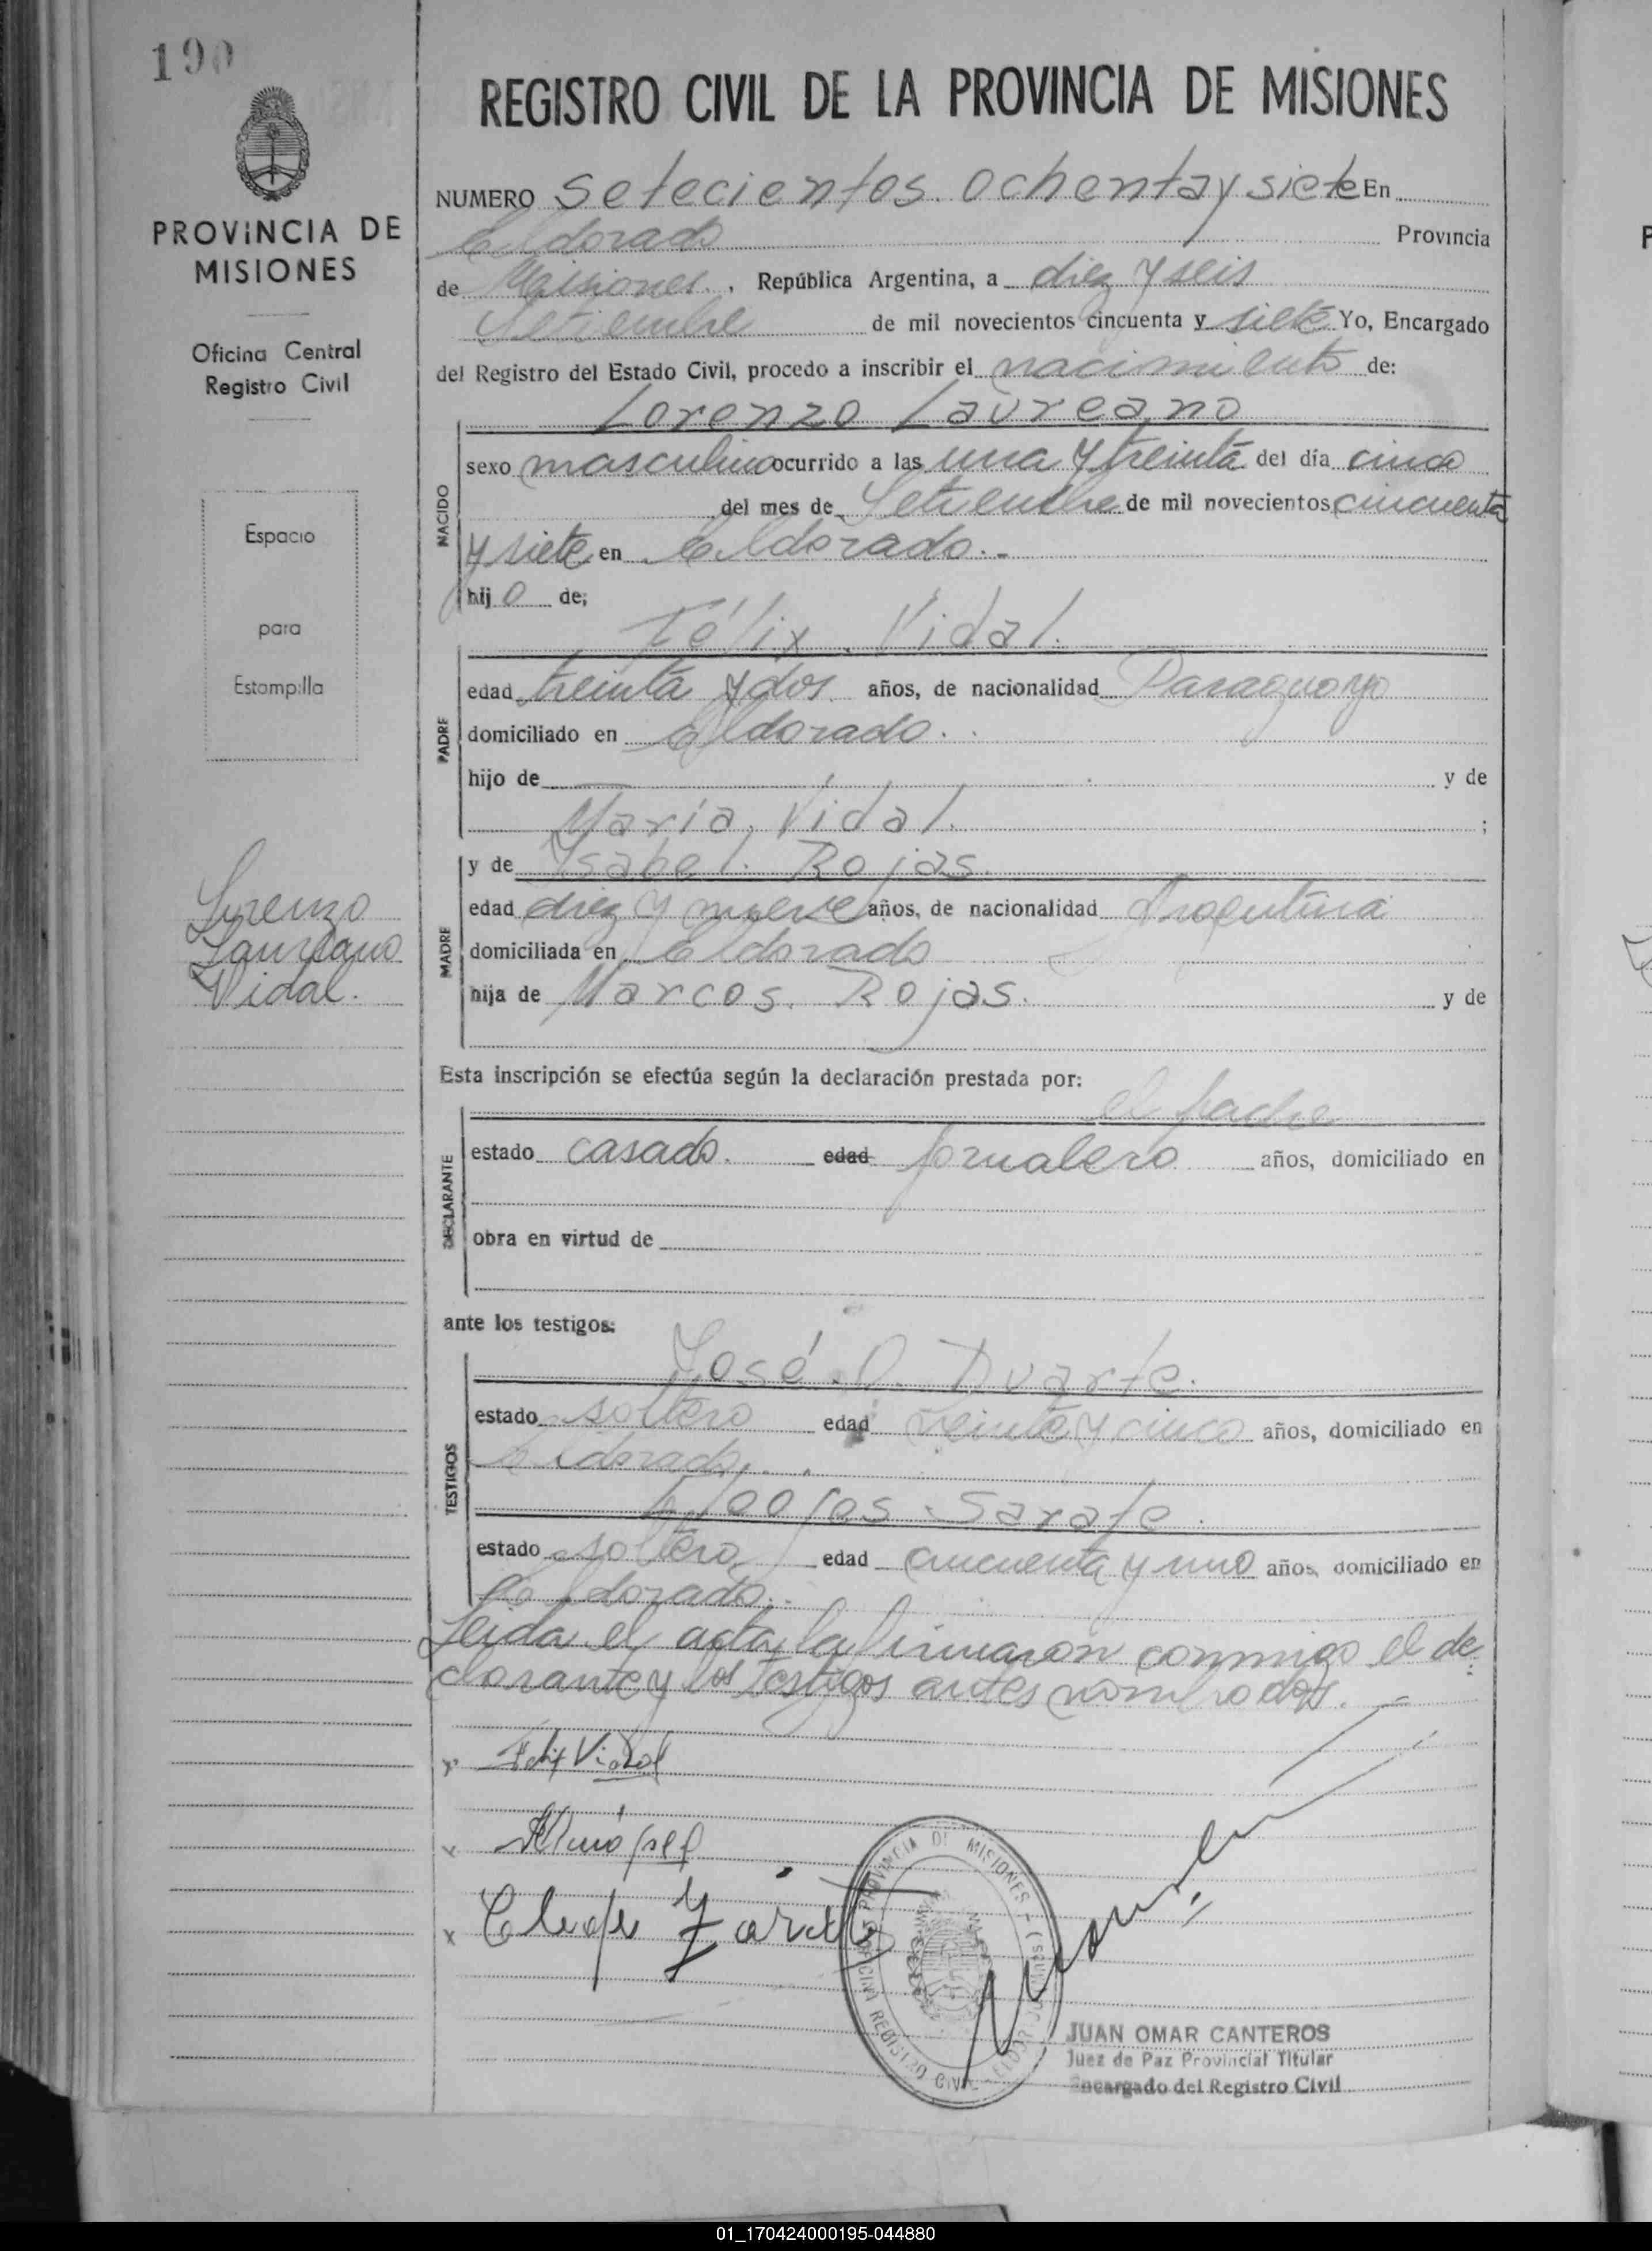 190
REGISTRO CIVIL DE LA PROVINCIA DE MISIONES
PROVINCIA DE
MISIONES
Oficina Central
Registro Civil
Espacio
para
Estampilla
Lorenzo
Laureano
Vidal.
NUMERO Setecientos. ochenta y siete En
Eldorado Provincia
de Misiones. , República Argentina, a diez y seis
Setiembre de mil novecientos cincuenta y siete Yo, Encargado
del Registro del Estado Civil, procedo a inscribir el nacimiento de:
Lorenzo Laureano
NACIDO
sexo masculino ocurrido a las una y treinta del día cinco
del mes de Setiembre de mil novecientos cincuenta
y siete en Eldorado.-
hij o de;
Félix Vidal.
PADRE
edad treinta y dos años, de nacionalidad Paraguayo
domiciliado en Eldorado.
hijo de y de
María, Vidal. ;
MADRE
y de Ysabel. Rojas.
edad diez y nueve años, de nacionalidad Argentina
domiciliada en Eldorado
hija de Marcos. Rojas. y de
Esta inscripción se efectúa según la declaración prestada por:
el padre
DECLARANTE
estado casado. edad jornalero años, domiciliado en
obra en virtud de
ante los testigos:
José. D. Duarte.
TESTIGOS
estado soltero edad veinte y cinco años, domiciliado en
Eldorado.
Sarate.
estado soltero edad cincuenta y uno años, domiciliado en
Eldorado.
Leida el acta, la firmaron conmigo el de
clarante y los testigos antes nombrados.
x Felix Vidal
x
x Zarate
PROVINCIA DE MISIONES
OFICINA REGISTRO CIVIL
JUAN OMAR CANTEROS
Juez de Paz Provincial Titular
Encargado del Registro Civil
01_170424000195-044880